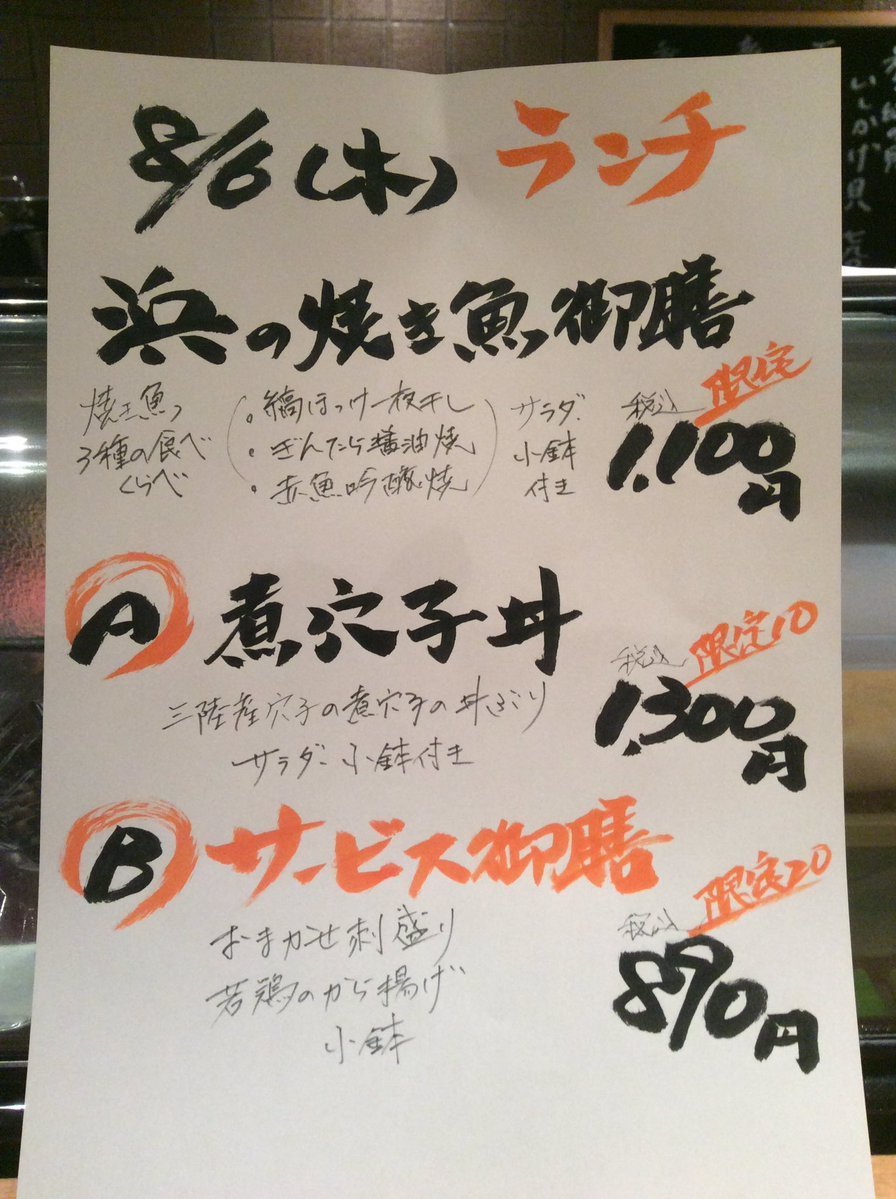 8/6(木) ランチ
浜の焼き魚御膳
焼き魚
3種の食べ
くらべ
・縞ほっけ一夜干し
・ぎんだら醤油焼
・赤魚吟醸焼
サラダ、
小鉢
付き
税込 限定
1,100円
A 煮穴子丼
三陸産穴子の煮穴子の丼ぶり
サラダ、小鉢付き
税込 限定10
1,300円
B サービス御膳
おまかせ刺盛り
若鶏のから揚げ
小鉢
税込 限定20
890円
いしかげ貝